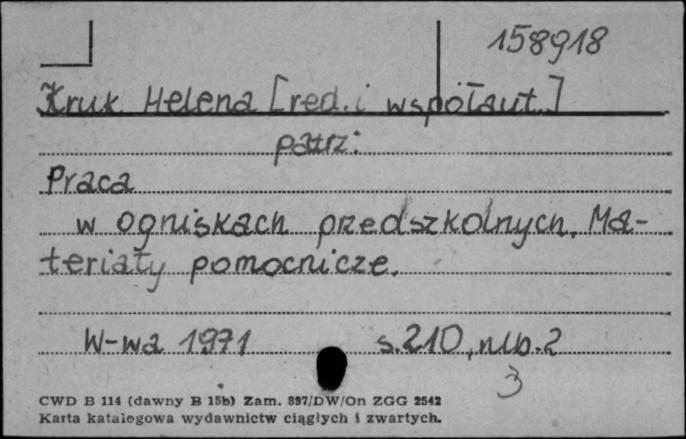 158918
Kruk Helena [red. i współaut.]
patrz:
Praca
w ogniskach przedszkolnych. Ma-
teriały pomocnicze.
W-wa 1971 s.210, nlb.2
3
CWD B 114 (dawny B 15b) Zam. 897/DW/On ZGG 2542
Karta katalogowa wydawnictw ciągłych i zwartych.